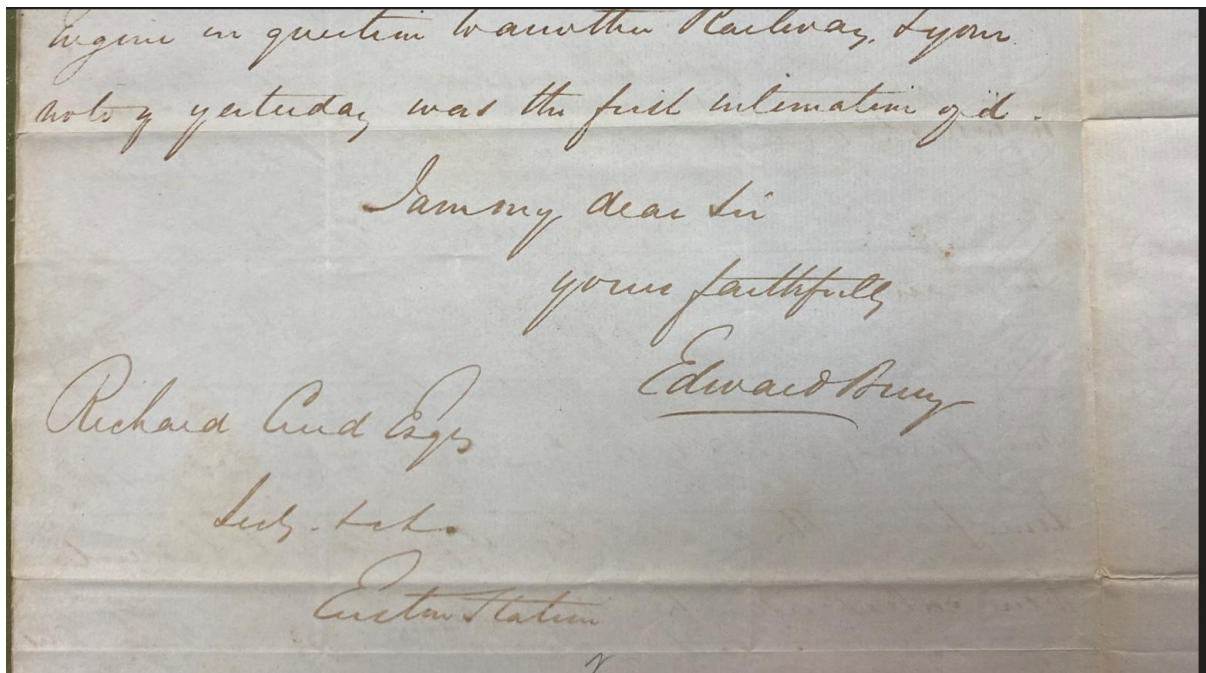 Engine in question to another Railway, & your
note of yesterday was the first intimation of it.
I am my dear Sir
yours faithfully
Edward Bury
Richard Creed Esqre
Secy. &c &c.
Euston Station